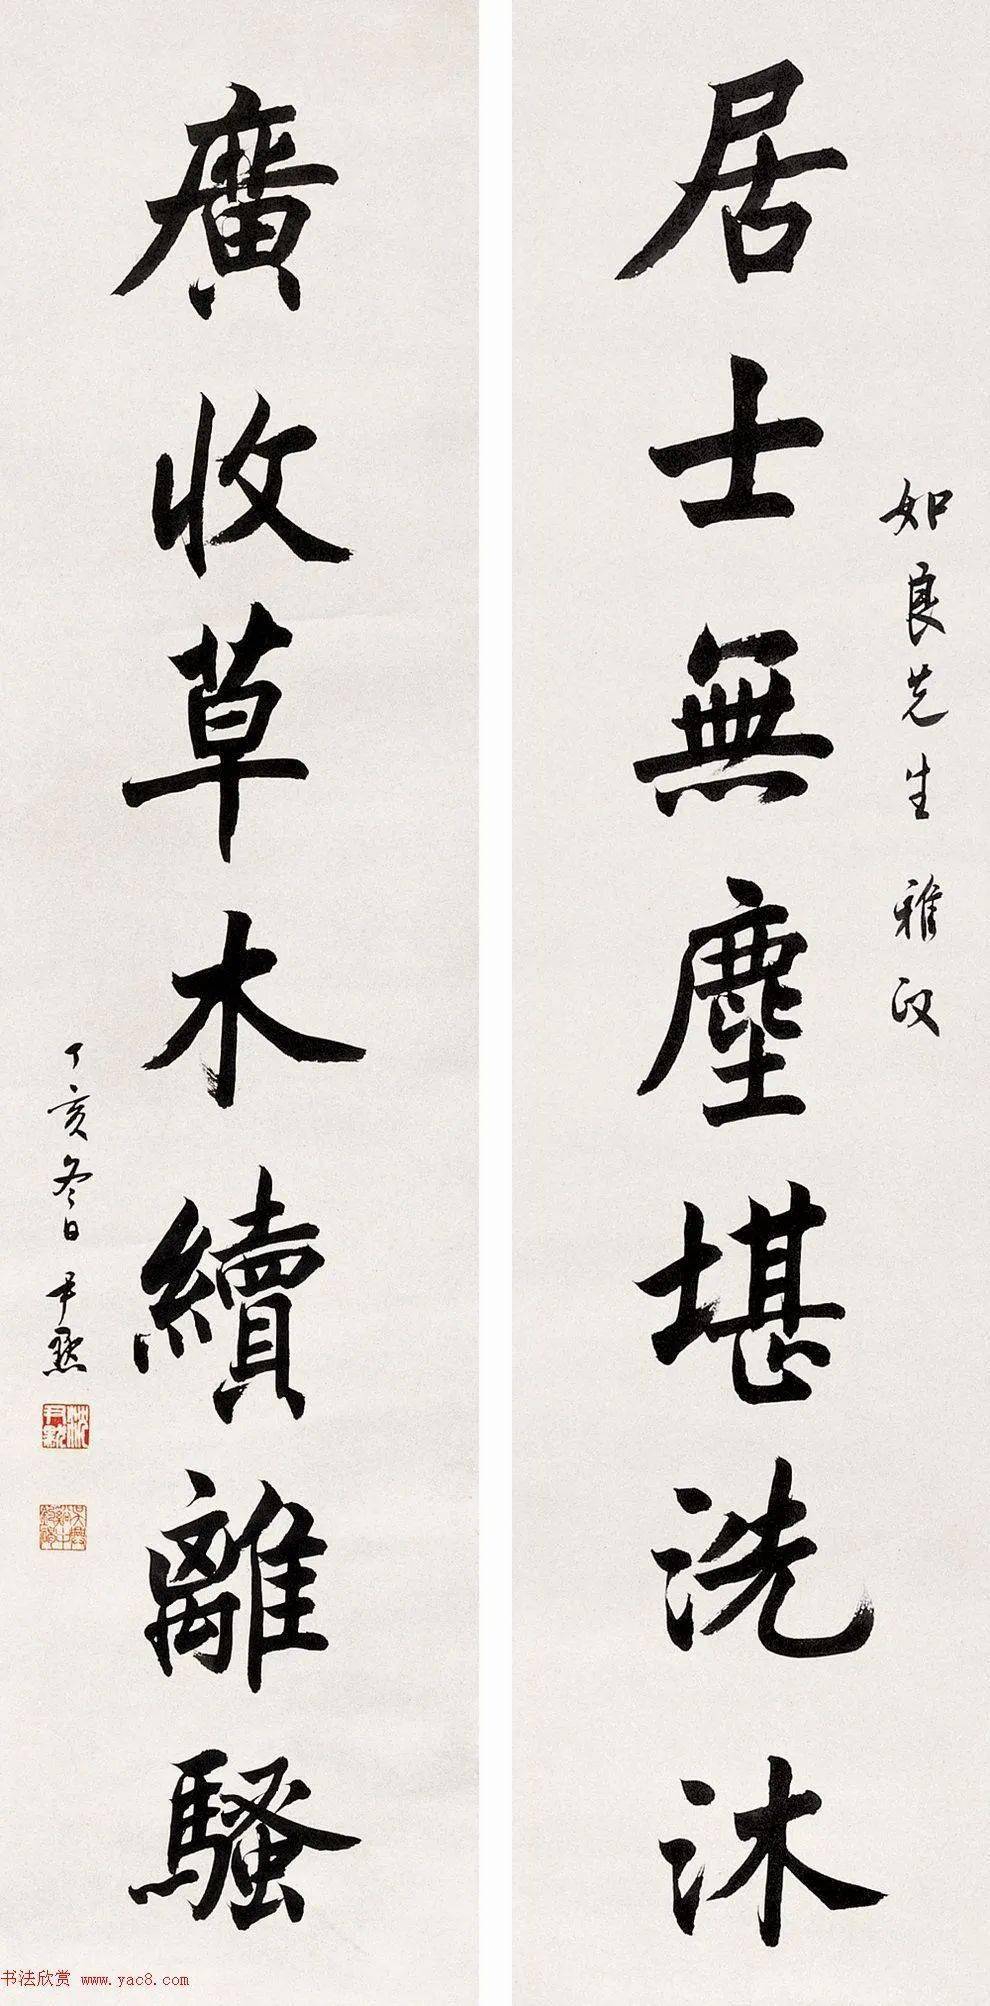 如良先生雅政
居士無塵堪洗沐
廣收草木續離騷
丁亥冬日尹默
沈尹默
书法欣赏 www.yac8.com